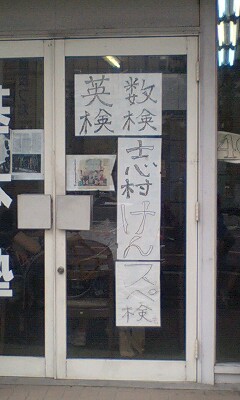 数検
英検
志村けん
スペ検
塾